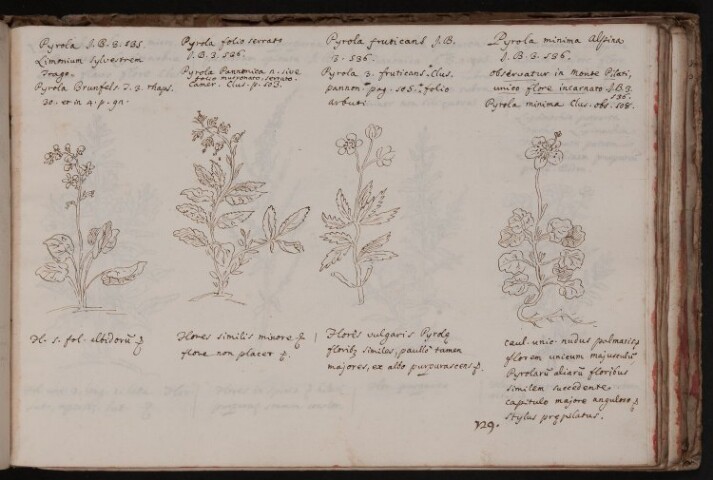 Pyrola J.B.3.535.
Limonium Sylvestrem
Trago.
Pyrola Brunfels. T.3. rhaps.
30. et in 4. p. 91.
Fl. s. fol. albidorū
Pyrola folio serrato
J.B.3.536.
Pyrola Pannonica n. sive
folio mucronato serrato.
Camer. Clus. p. 503.
Flores similis minore
flore non placet
Pyrola fruticans J.B.
3. 536.
Pyrola 3. fruticans. Clus.
pannon. pag. 505. folio
arbuti.
Flores vulgaris Pyrolę
florib9 similes, paullo tamen
majores, ex albo purpurascens
Pyrola minima Alpina
J.B.3.536.
observatur in Monte Pilati,
unico flore incarnato. J.B.3.
536.
Pyrola minima Clus. obs. 508.
caul. unio. nudus palmaris
florem unicum majusculū
Pyrolarū aliarū floribus
similem succedente
capitulo majore anguloso
Stylus
129.